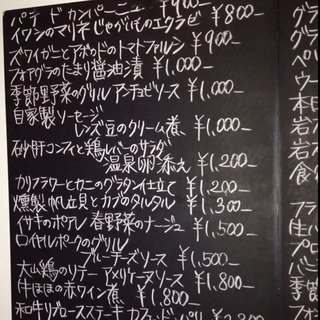 パテ ド カンパーニュ ¥900-
イワシのマリネ じゃがいものエクラゼ ¥800-
ズワイガニとアボカドのトマトファルシ ¥900-
フォアグラのたまり醤油漬 ¥1,000-
季節野菜のグリル アンチョビソース ¥1,000-
自家製ソーセージ
レンズ豆のクリーム煮 ¥1,000-
砂肝コンフィと鶏レバーのサラダ
温泉卵添え ¥1,200-
カリフラワーとカニのグラタン仕立て ¥1,200-
燻製帆立貝とカブのタルタル ¥1,300-
イサキのポアレ 春野菜のナージュ ¥1,500-
ロイヤルポークのグリル
ブルーチーズソース ¥1,500-
大山鶏のソテー アメリケーヌソース ¥1,800-
牛ほほの赤ワイン煮 ¥1,800-
和牛リブロースステーキ
グ
グラ
ペ
ウ
本日
岩
岩
食
フラ
生ハ
プロ
バ
季節